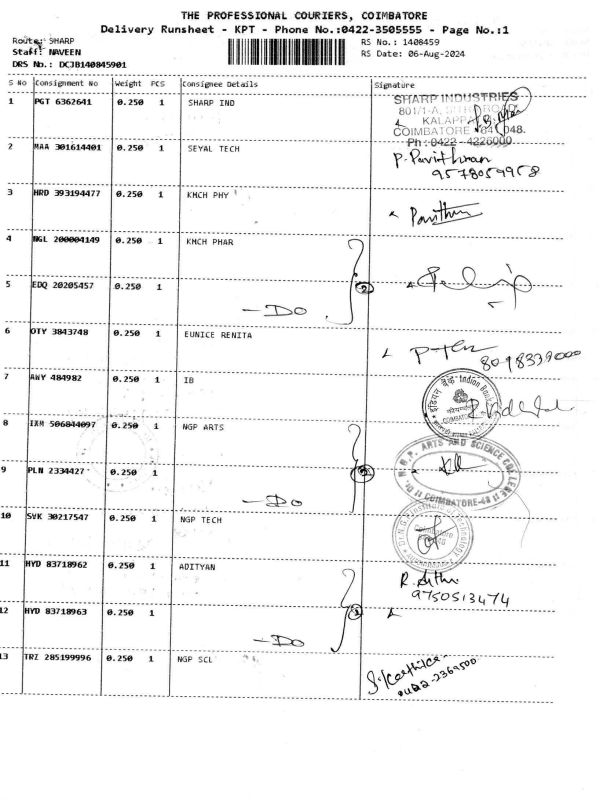 THE PROFESSIONAL COURIERS, COIMBATORE
Delivery Runsheet - KPT - Phone No.:0422-3505555 - Page No.:1
Route: SHARP
Staff: NAVEEN
DRS No.: DCJB140845901
RS No.: 1408459
RS Date: 06-Aug-2024
S No Consignment No Weight PCS Consignee Details Signature
1 PGT 6362641 0.250 1 SHARP IND
SHARP INDUSTRIES
801/1-A,
KALAPP
COIMBATORE 641 048.
Ph : 0422 - 4226000
2 MAA 301614401 0.250 1 SEYAL TECH
P. Pavithran
9578059958
3 HRD 393194477 0.250 1 KMCH PHY
Pavithran
4 NGL 200004149 0.250 1 KMCH PHAR
5 EDQ 20205457 0.250 1 - DO 2
6 OTY 3843748 0.250 1 EUNICE RENITA
8098339000
7 AWY 484982 0.250 1 IB
इंडियन बैंक Indian Bank
8 IXM 506844097 0.250 1 NGP ARTS
N.G.P. ARTS AND SCIENCE COLLEGE
COIMBATORE-48
9 PLN 2334427 0.250 1 - DO 2
10 SVK 30217547 0.250 1 NGP TECH
Coimbatore
11 HYD 83718962 0.250 1 ADITYAN
9750513474
12 HYD 83718963 0.250 1 - DO 2
13 TRZ 285199996 0.250 1 NGP SCL
0422-2369500